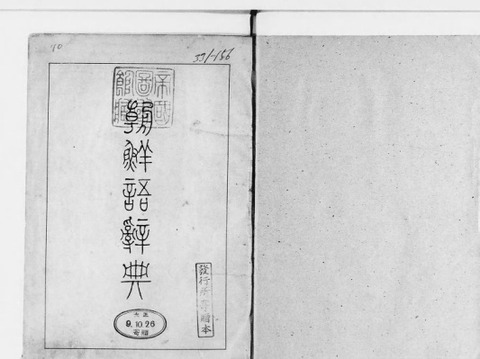 10
331-156
帝國圖書館藏
朝鮮語辭典
發行所寄贈本
大正
9.10.26
寄贈